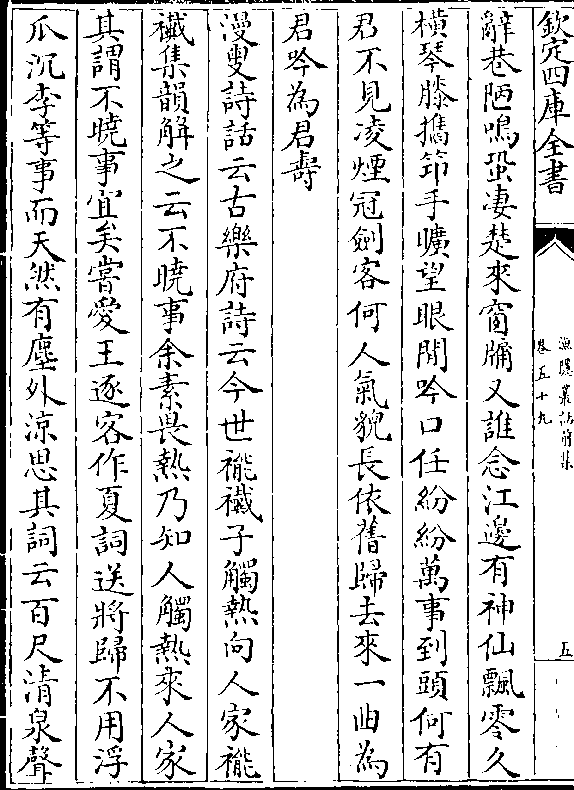 欽定四庫全書
漁隱叢話前集
卷五十九
五
辭巷陋鳴蛩淒楚來窗牖又誰念江邊有神仙飄零久
橫琴膝攜筇手曠望眼閒吟口任紛紛萬事到頭何有
君不見凌煙冠劍客何人氣貌長依舊歸去來一曲為
君吟為君壽
漫叟詩話云古樂府詩云今世褦襶子觸熱向人家褦
襶集韻解之云不曉事余素畏熱乃知人觸熱來人家
其謂不曉事宜矣嘗愛王逐客作夏詞送將歸不用浮
瓜沉李等事而天然有塵外涼思其詞云百尺清泉聲